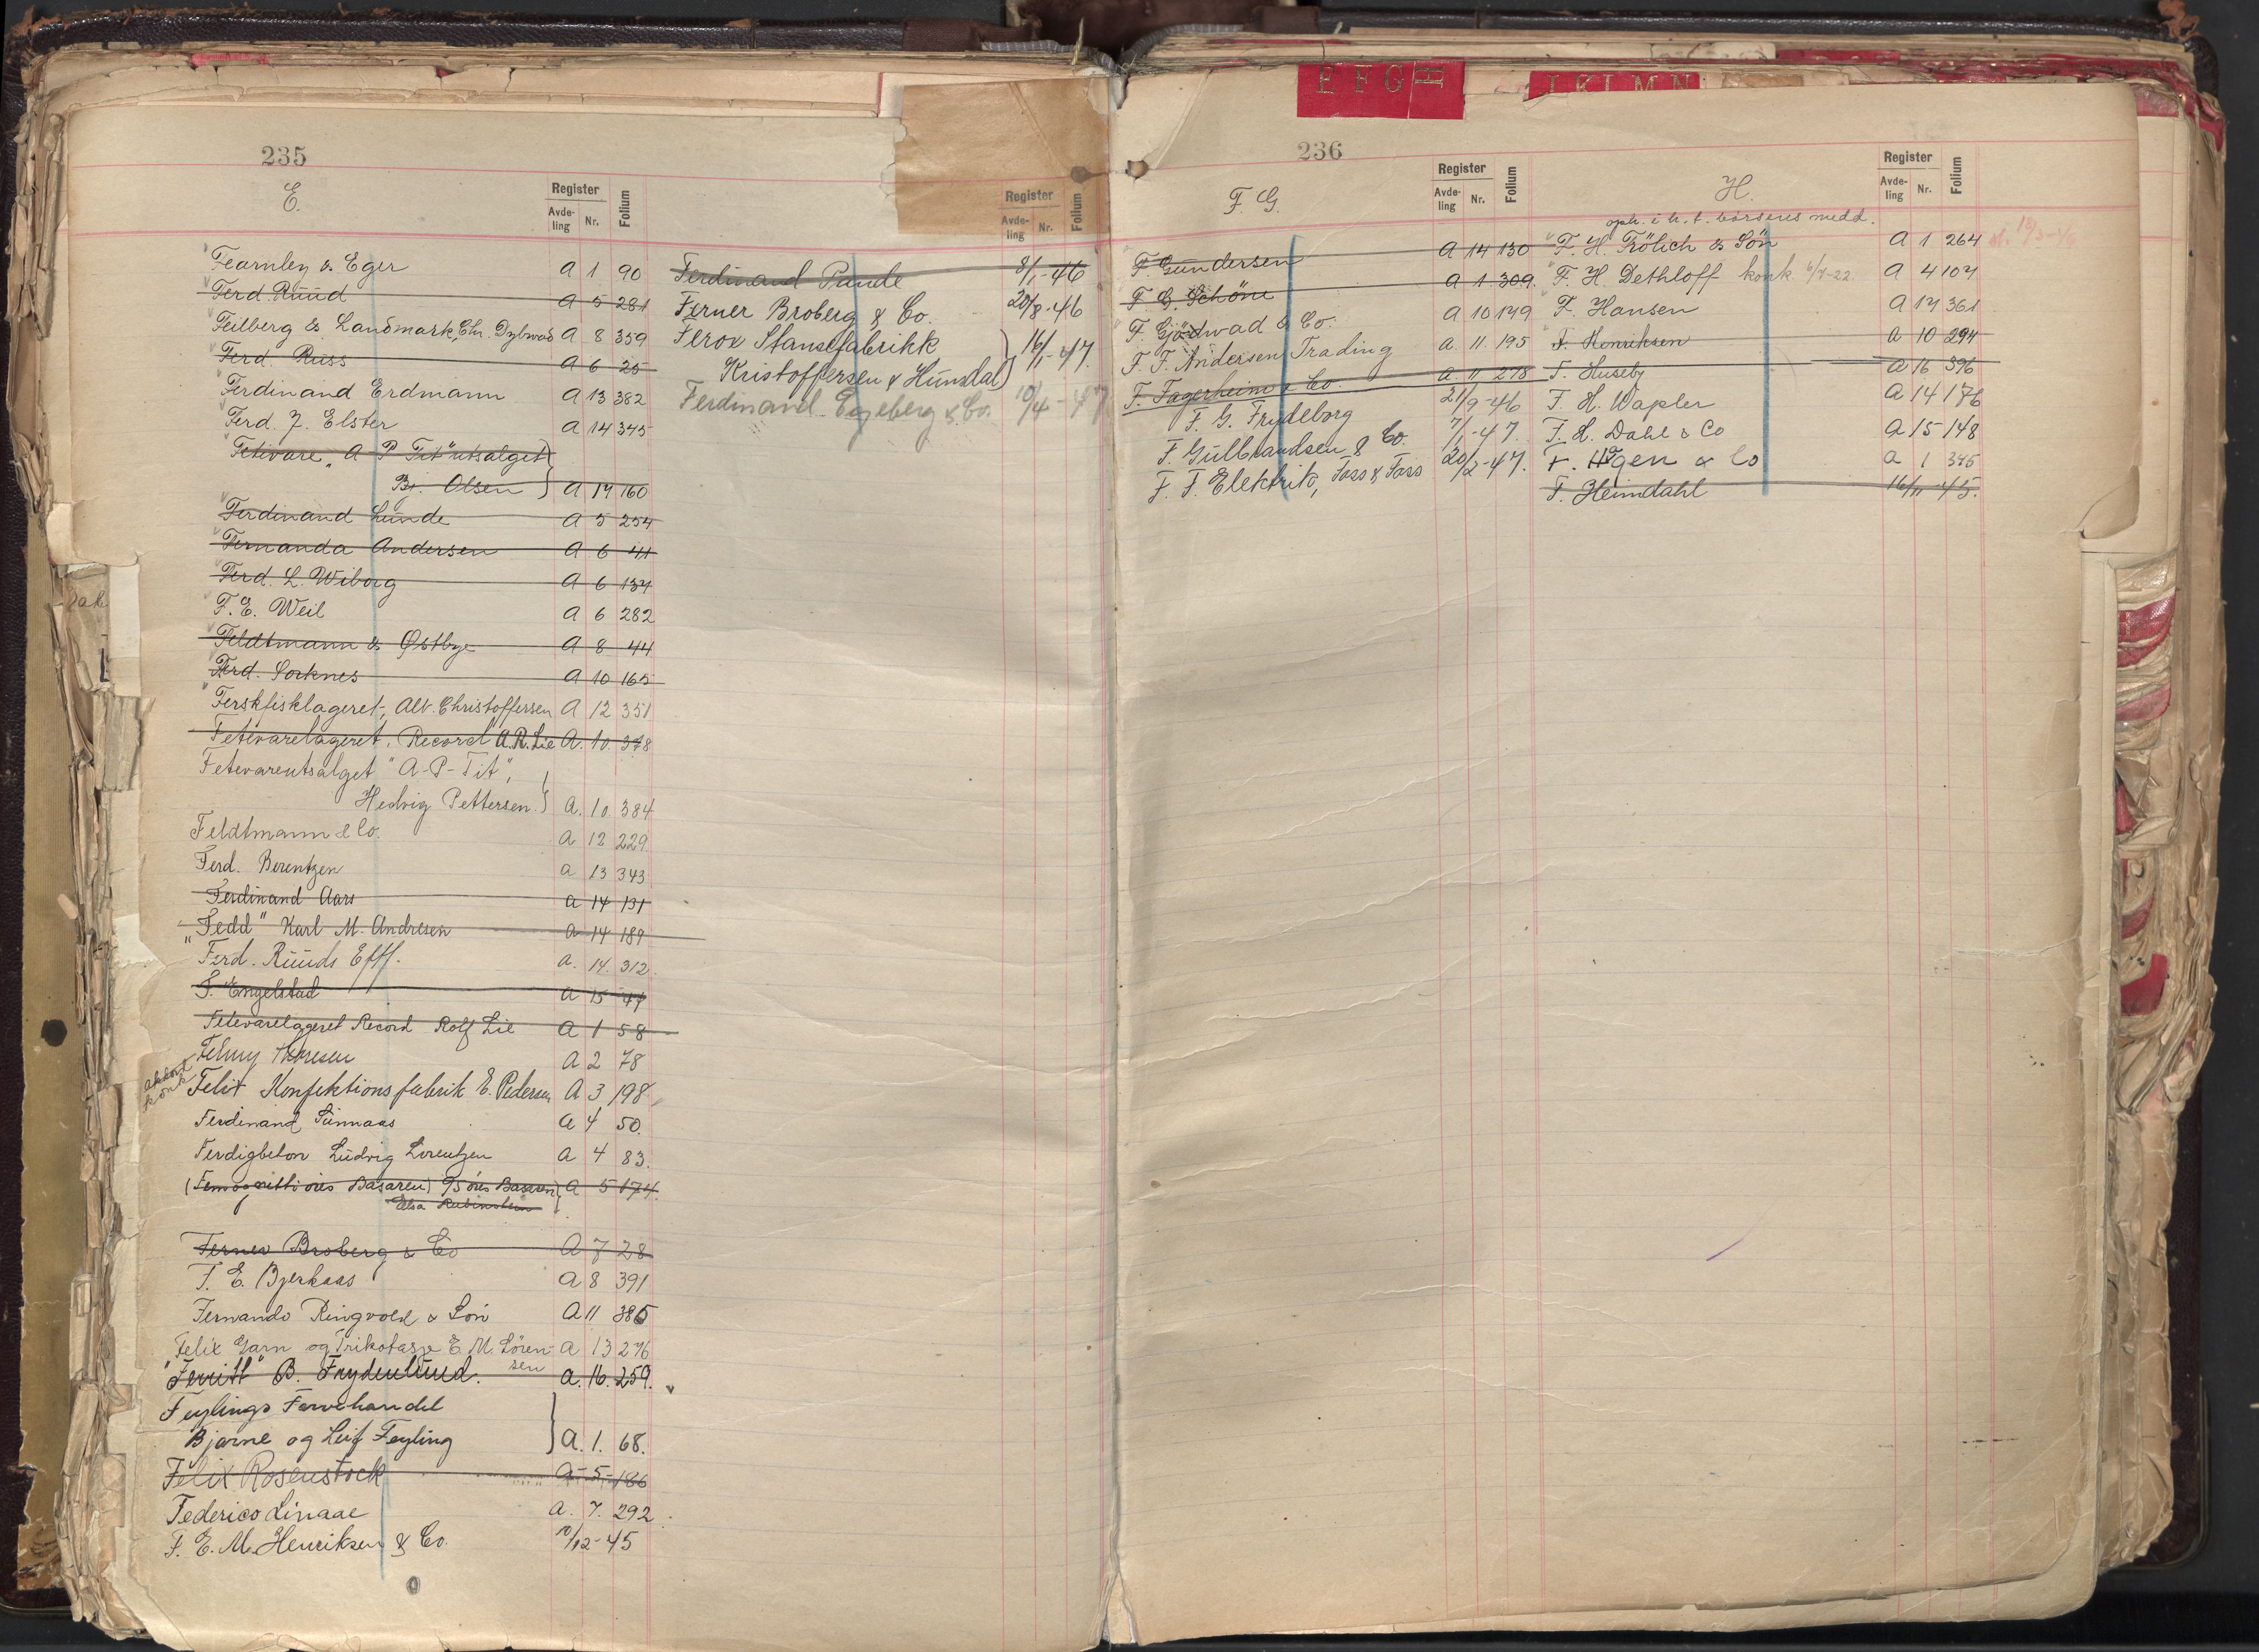 235
E.
Register
Avde-
ling
Nr.
Folium
Fearnley & Eger A 1 90
Ferd. Ruud A 5 281
Feilberg & Landmark, Chr. Dybwad A 8 359
Ferd. Russ A 6 25
Ferdinand Erdmann A 13 382
Ferd. J. Elster A 14 345
Fetevare „A P Tit" utsalget
Br. Olsen A 14 160
Ferdinand Lunde A 5 254
Fernanda Andersen A 6 41
Ferd. L. Wiborg A 6 134
F. E. Weil A 6 282
Feldtmann & Østbye A 8 44
Ferd. Sorknes A 10 165
Ferskfisklageret, Alf. Christoffersen A 12 351
Fetevarelageret, Record A.R. Lie A. 10. 378
Fetevareutsalget "A-P-Tit",
Hedvig Pettersen A. 10. 384
Feldtmann & Co. A 12 229
Ferd. Berentzen A 13 343
Ferdinand Aars A 14 131
„Fedd" Karl M. Andresen A 14 189
Ferd. Ruuds Eftf. A. 14. 312
F. Engelstad A 15 47
Fetevarelageret Record Rolf Lie A 1 58
Felmy Thoresen A 2 78
akkord
konk
Felix Konfektionsfabrik E. Pedersen A 3 198
Ferdinand Sunnaas A 4 50.
Ferdigbeton Ludvig Lorentzen A 4 83.
(Femognitti øres Basaren) 95 øres Basaren A 5 174.
Elsa Rubinstein
Ferner Broberg & Co A 7 28
F. E. Bjerkaas A 8 391
Fernando Ringvold & Søn A 11 385
Felix Garn og Trikotasje E. M. Søren- A 13 276
sen
"Ferritt" B. Frydenlund. A. 16. 259.
Feylings Farvehandel
Bjarne og Leif Feyling A. 1. 68.
Felix Rosenstock A-5-186
Federico Linaae A. 7. 292
F. E. M. Henriksen & Co. 10/12-45
Register
Avde-
ling
Nr.
Folium
Ferdinand Pande 8/1-46
Ferner Broberg & Co. 20/8-46
Ferox Stansefabrikk
Kristoffersen & Hunsdal 16/1-47.
Ferdinand Egeberg & Co. 10/4-47
E F G H
I K L M N
236
F. G.
Register
Avde-
ling
Nr.
Folium
F. Gundersen A 14 130
F. G. Schöne A 1 309.
F. Gjødwad & Co. A 10 149
F. F. Andersen Trading A. 11. 195
F. Fagerheim & Co. A 11 278
F. G. Frydeborg 21/9-46
F. Gulbrandsen & Co. 7/1-47.
F. F. Elektrik, Foss & Foss 20/2-47.
H.
Register
Avde-
ling
Nr.
Folium
oph. i h. t. børsens medd.
F. H. Frölich & Søn A 1 264
F. H. Dethloff konk 6/7-22. A 4 107
F. Hansen A 17 361
F. Henriksen A 10 294
F. Huseby A 16 396
F. H. Wapler A 14 176
F. H. Dahl & Co A 15 148
F. Hagen & Co A 1 345
F. Heimdahl 16/11-45.